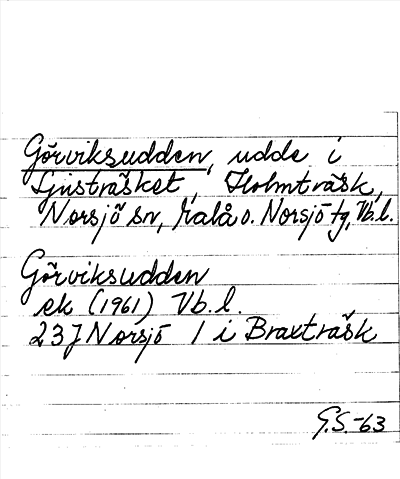 Görviksudden, udde i
Ljusträsket, Holmträsk,
Norsjö sn, Malå o. Norsjö tg, Vb. l.
Görviksudden
ek (1961) Vb. l.
23J Norsjö 1 i Braxträsk
G.S.-63